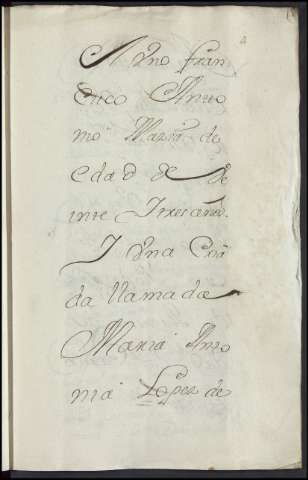 A Dno fran
Cisco Anto
nio Maria de
edad de Ve
inte Itres años.
I Vna Cria
da llamada
Maria Anto
nia Lopez de